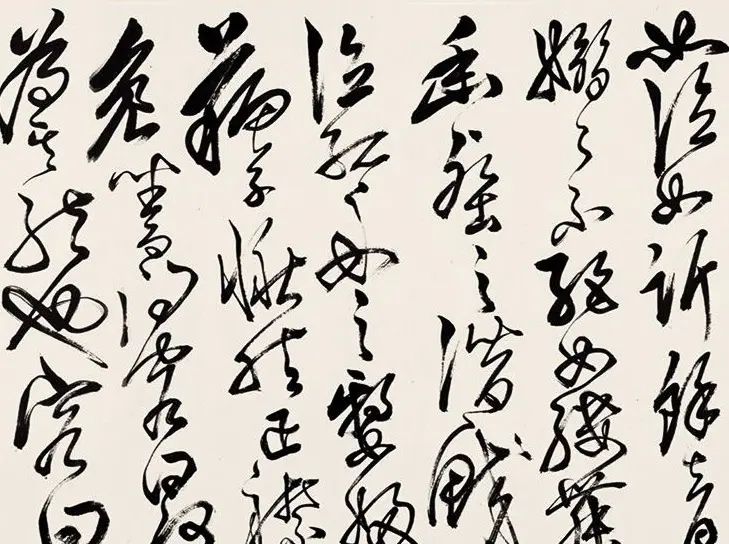 如泣如訴餘音
嫋嫋不絕如縷舞
幽壑之潛蛟
泣孤舟之嫠婦
蘇子愀然正襟
危坐而問客曰何
為其然也客曰